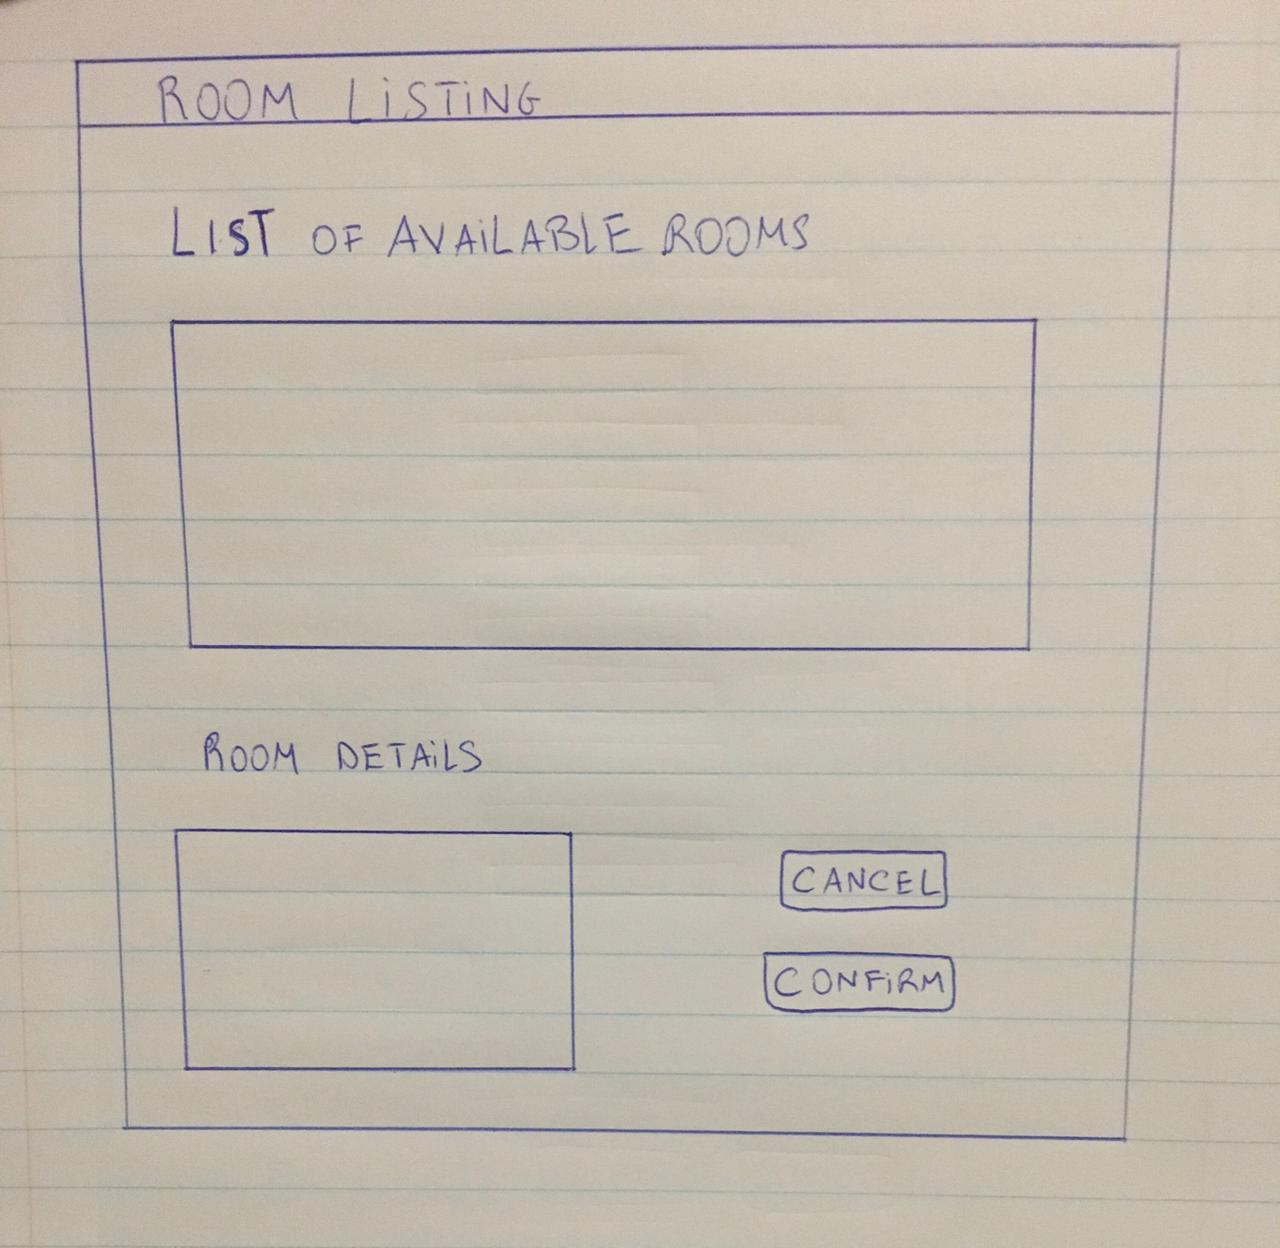 ROOM LISTING
LIST OF AVAILABLE ROOMS
ROOM DETAILS
CANCEL
CONFIRM